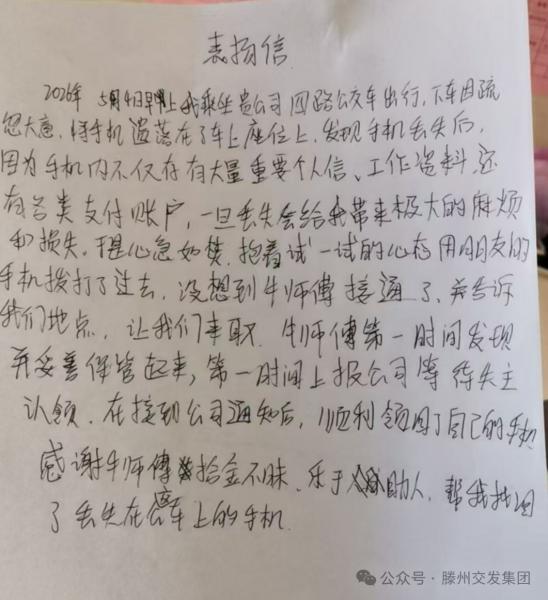 表扬信
2026年 5月4日早上我乘坐贵公司四路公交车出行,下车因疏
忽大意,将手机遗落在了车上座位上,发现手机丢失后,
因为手机内不仅存有大量重要个人信、工作资料还
有各类支付账户,一旦丢失会给我带来极大的麻烦
和损失。于是心急如焚,抱着试一试的心态用朋友的
手机拨打了过去,没想到牛师傅接通了,并告诉
我们地点,让我们来取。牛师傅第一时间发现
并妥善保管起来,第一时间上报公司等待失主
认领。在接到公司通知后,顺利领回了自己的手机
感谢牛师傅拾金不昧、乐于助人,帮我找回
了丢失在公车上的手机
公众号·滕州交发集团